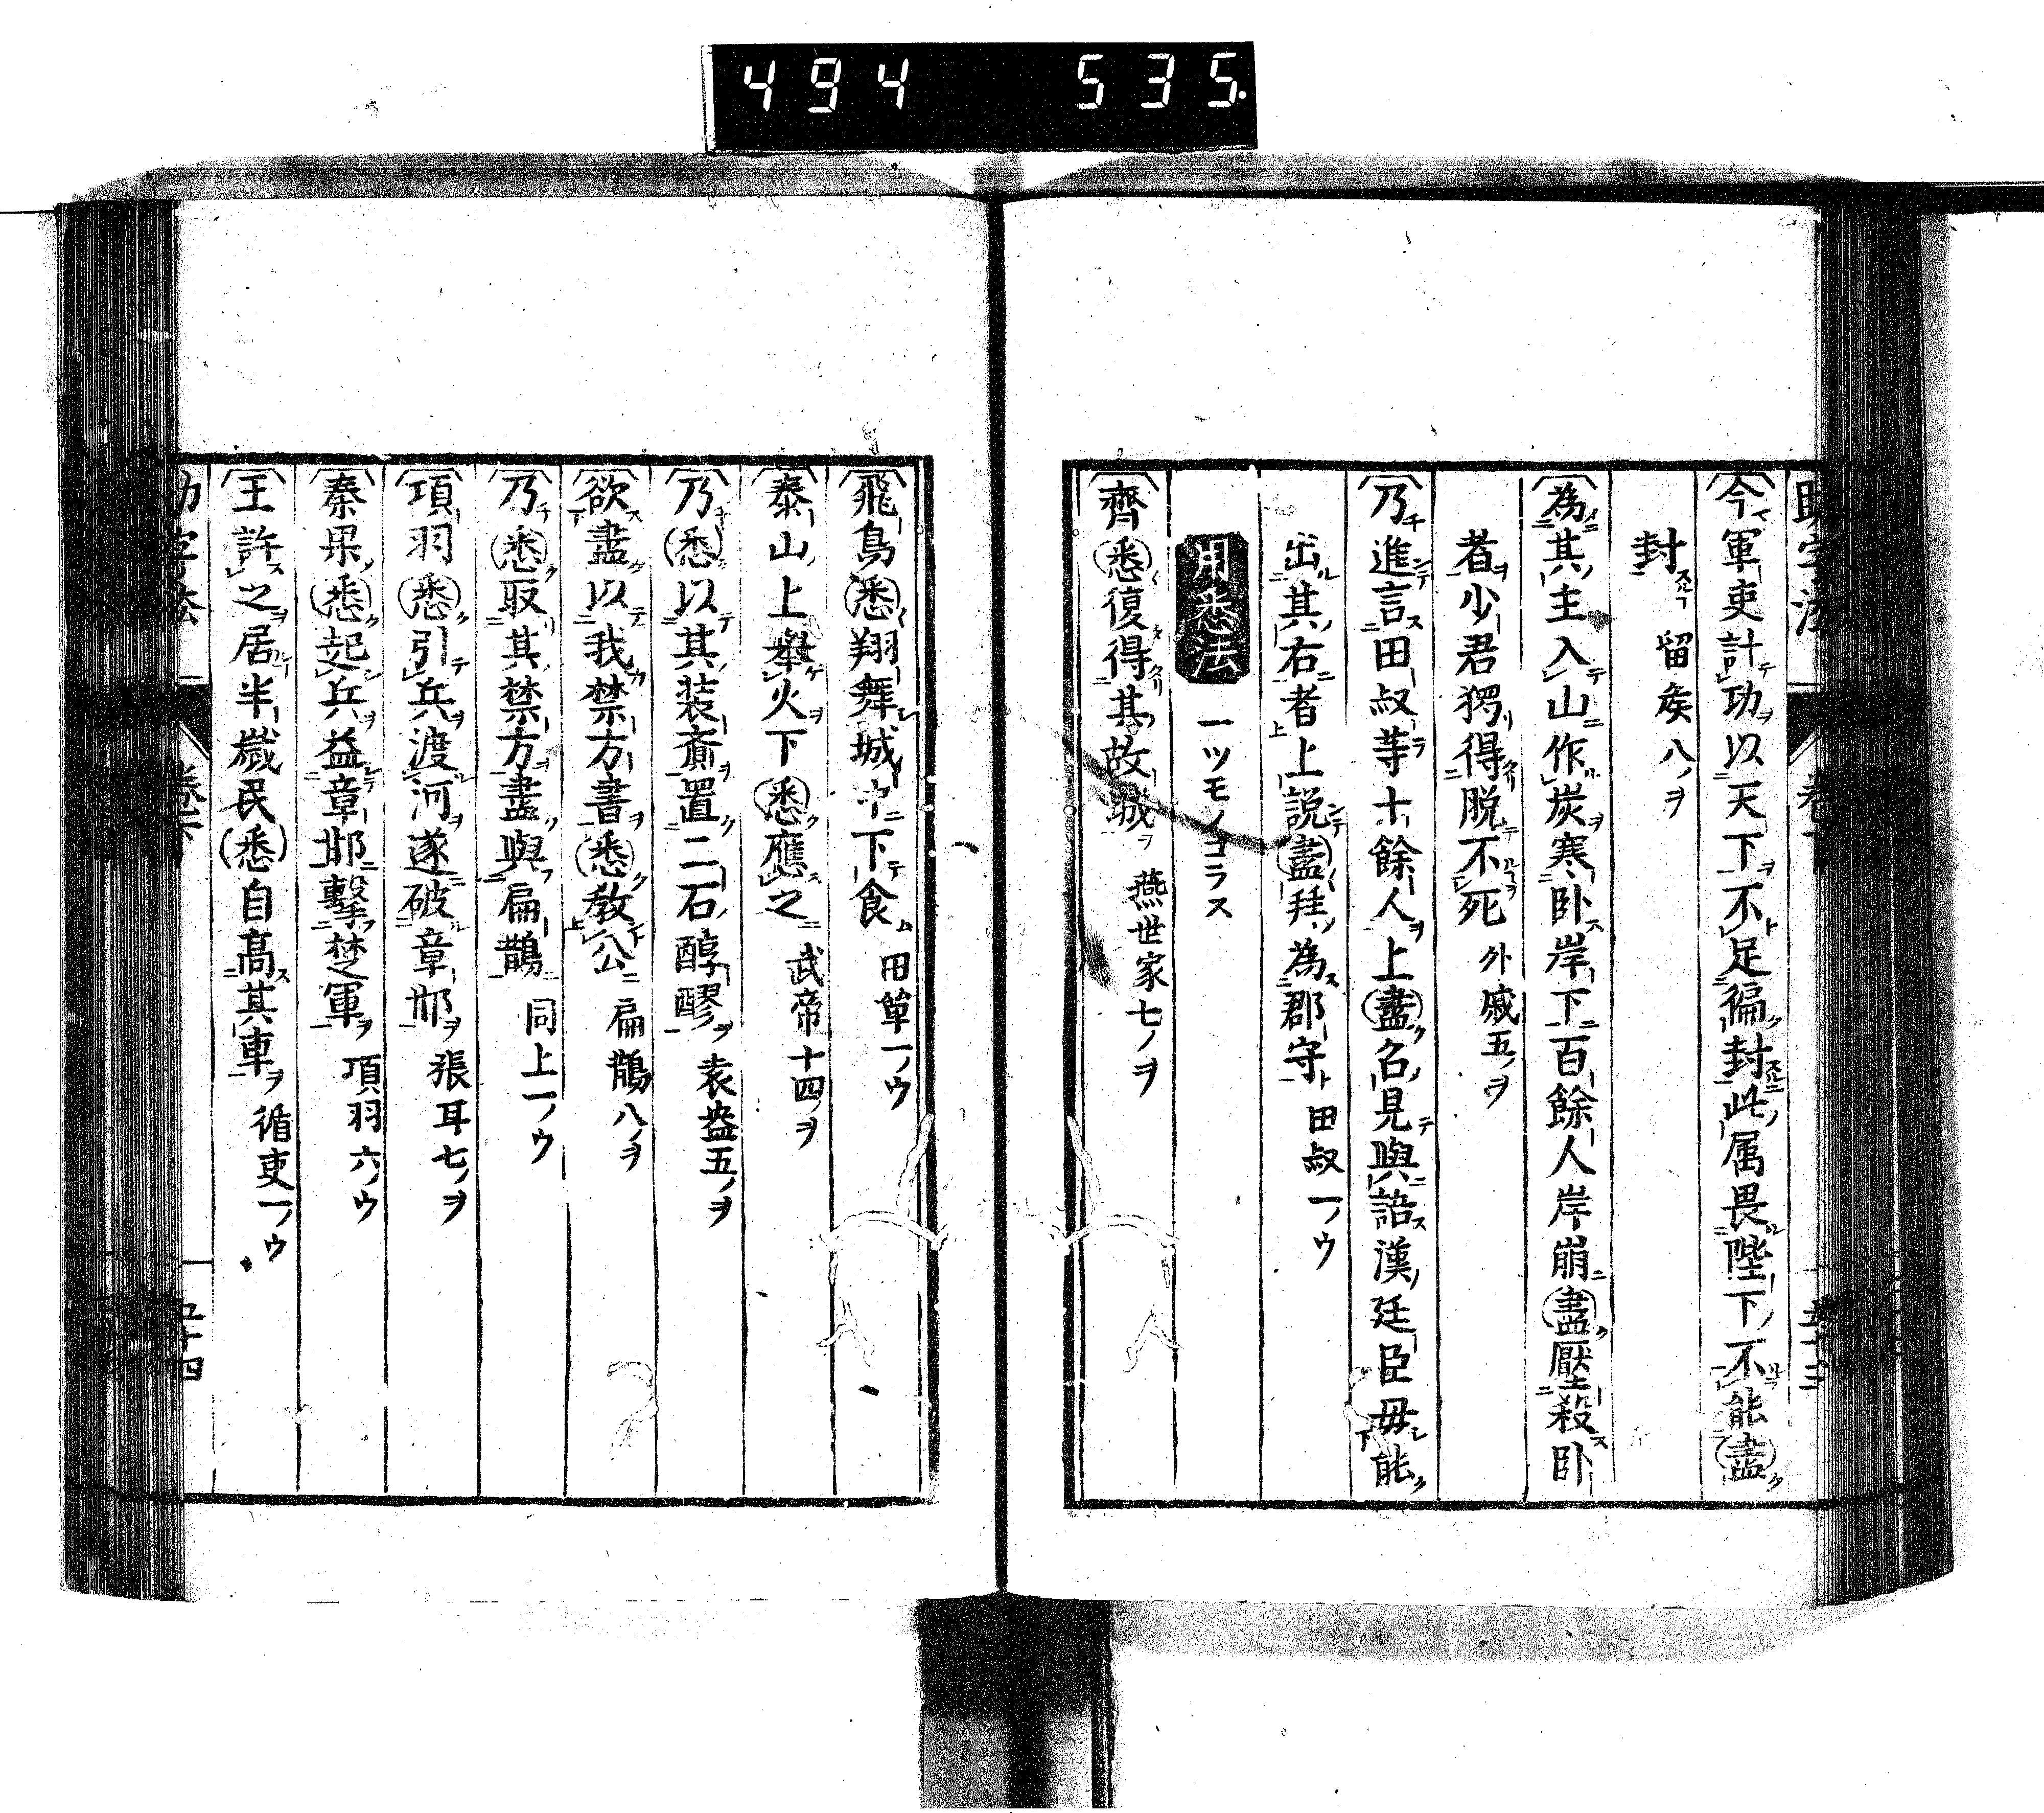 494 535.
今軍吏計功以天下不足徧封此属畏陛下不能盡
封 留矦八ノヲ
為其主入山作炭寒卧岸下百餘人岸崩盡壓殺卧
者少君獨得脱不死 外戚五ノヲ
乃進言田叔等十餘人上盡召見與語漢廷臣毋能
出其右者上説盡拜為郡守 田叔一ノウ
用悉法 一ツモノコラス
齊悉復得其故城 燕世家七ノヲ
飛鳥悉翔舞城中下食 田單一ノウ
泰山上舉火下悉應之 武帝十四ノヲ
乃悉以其装齎置二石醇醪 袁盎五ノヲ
欲盡以我禁方書悉教公 扁鵲八ノヲ
乃悉取其禁方盡與扁鵲 同上一ノウ
項羽悉引兵渡河遂破章邯 張耳七ノヲ
秦果悉起兵益章邯擊楚軍 項羽六ノウ
王許之居半歳民悉自高其車 循吏一ノウ
五十四